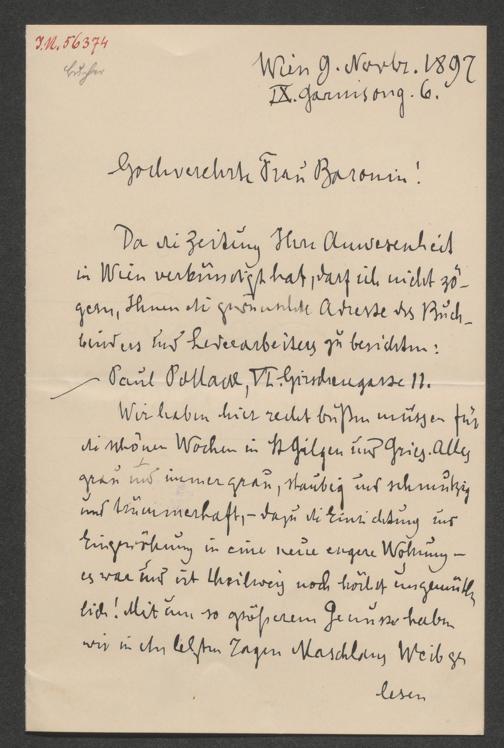 I.N. 56374
Bucher
Wien 9. Novbr. 1897
IX. Garnisong. 6.
Hochverehrte Frau Baronin!
Da die Zeitung Ihre Anwesenheit
in Wien verkündigt hat, darf ich nicht zö-
gern, Ihnen die gewünschte Adresse des Buch-
binders und Lederarbeiters zu berichten:
Paul Pollack, VI. Hirschengasse 11.
Wir haben hier recht büßen müssen für
die schönen Wochen in St Gilgen und Gries. Alles
grau und immer grau, staubig und schmutzig
und trümmerhaft, – dazu die Einrichtung und
Eingewöhnung in eine neue engere Wohnung –
es war und ist theilweis noch höchst ungemüth-
lich! Mit um so größerem Genusse haben
wir in den letzten Tagen Maschlans Weib ge
lesen